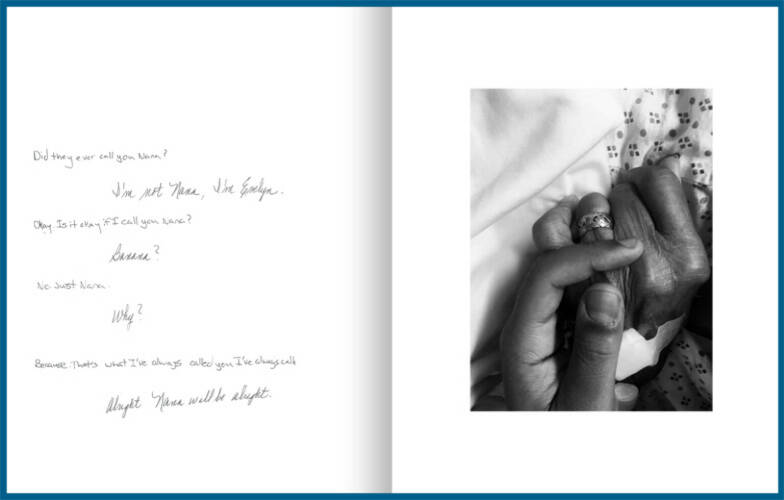 Did they ever call you Nana?
I'm not Nana, I'm Emelyn.
Okay. Is it okay if I call you Nana?
Banana?
No. Just Nana.
Why?
Because. That's what I've always called you I've always call
Alright Nana will be alright.